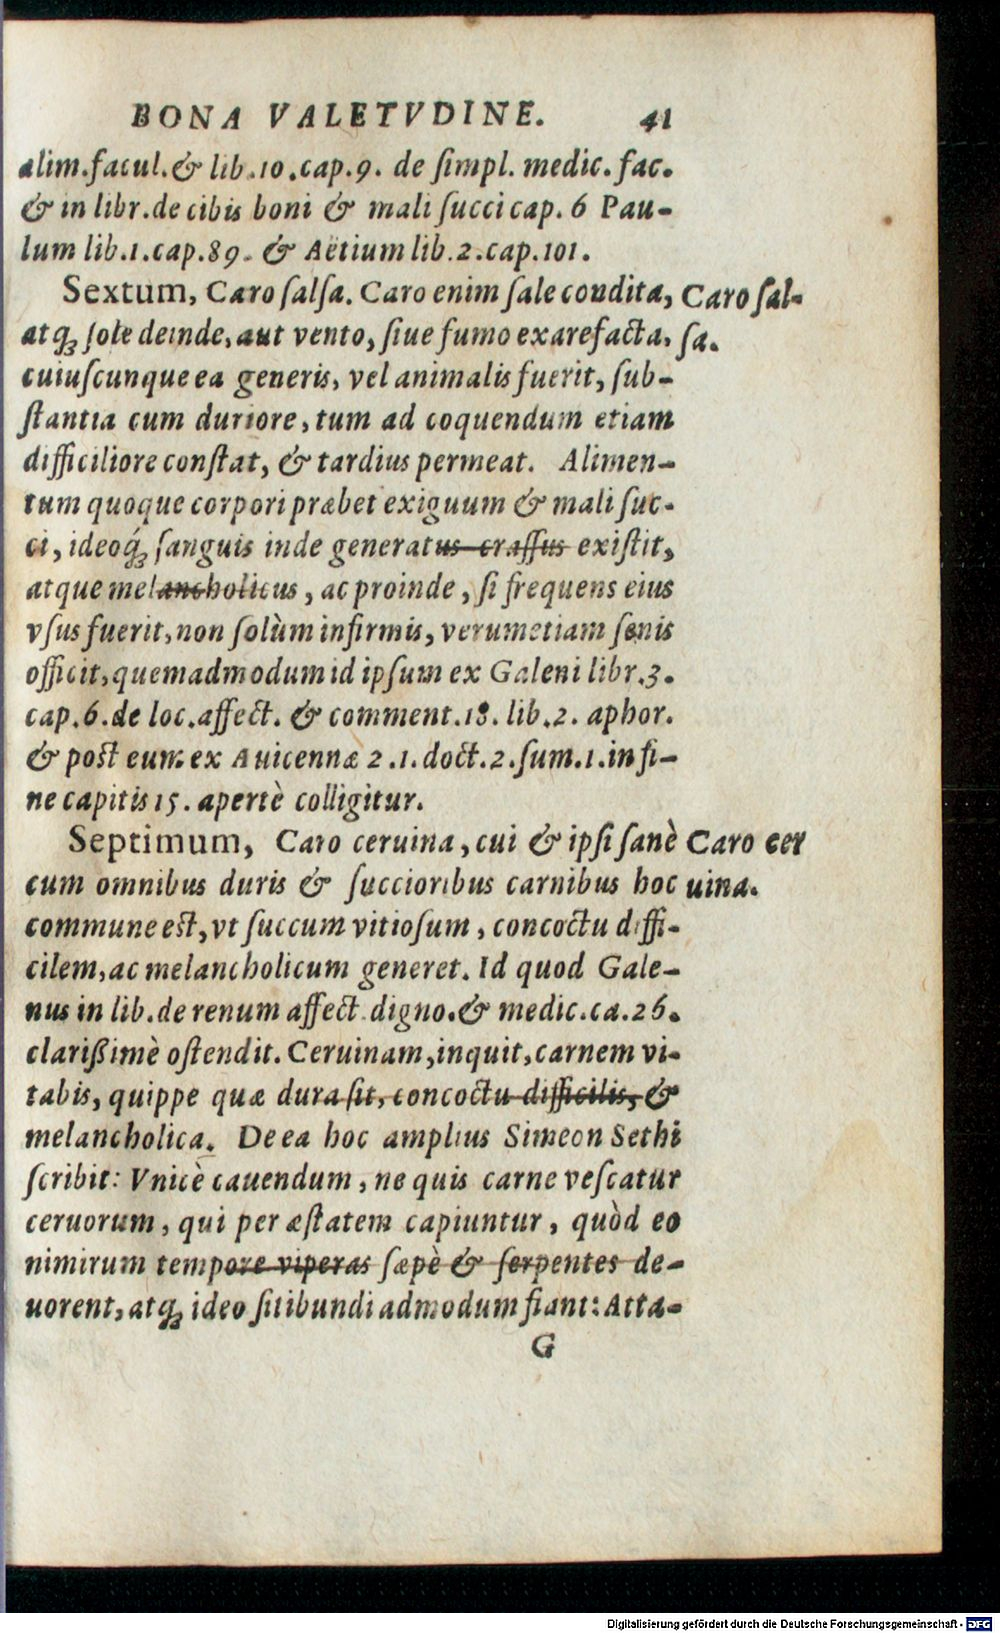 BONA VALETVDINE. 41
alim.facul.& lib.10.cap.9. de ſimpl. medic. fac.
& in libr.de cibis boni & mali ſucci cap. 6 Pau-
lum lib.1.cap.89. & Aëtium lib.2.cap.101.
Sextum, Caro ſalſa. Caro enim ſale condita, Caro ſal-
atq; ſole deinde, aut vento, ſiue fumo exarefacta, ſa.
cuiuſcunque ea generis, vel animalis fuerit, ſub-
ſtantia cum duriore, tum ad coquendum etiam
difficiliore conſtat, & tardius permeat. Alimen-
tum quoque corpori præbet exiguum & mali ſuc-
ci, ideoq́; ſanguis inde generatus craſſus exiſtit,
atque melancholicus, ac proinde, ſi frequens eius
vſus fuerit, non ſolùm infirmis, verumetiam ſanis
officit, quemadmodum id ipſum ex Galeni libr.3.
cap.6.de loc.affect. & comment.18. lib.2. aphor.
& post eum ex Auicennæ 2.1.doct.2.ſum.1.in fi-
ne capitis 15. apertè colligitur.
Septimum, Caro ceruina, cui & ipſi ſanè Caro cer
cum omnibus duris & ſuccioribus carnibus hoc uina.
commune est, vt ſuccum vitioſum, concoctu diffi-
cilem, ac melancholicum generet. Id quod Gale-
nus in lib.de renum affect.digno.& medic.ca.26.
clarißimè oſtendit. Ceruinam, inquit, carnem vi-
tabis, quippe quæ dura ſit, concoctu difficilis, &
melancholica. De ea hoc amplius Simeon Sethi
ſcribit: Vnicè cauendum, ne quis carne veſcatur
ceruorum, qui per æſtatem capiuntur, quòd eo
nimirum tempore viperas ſæpè & ſerpentes de-
uorent, atq; ideo ſitibundi admodum fiant: Atta-
G
Digitalisierung gefördert durch die Deutsche Forschungsgemeinschaft - DFG